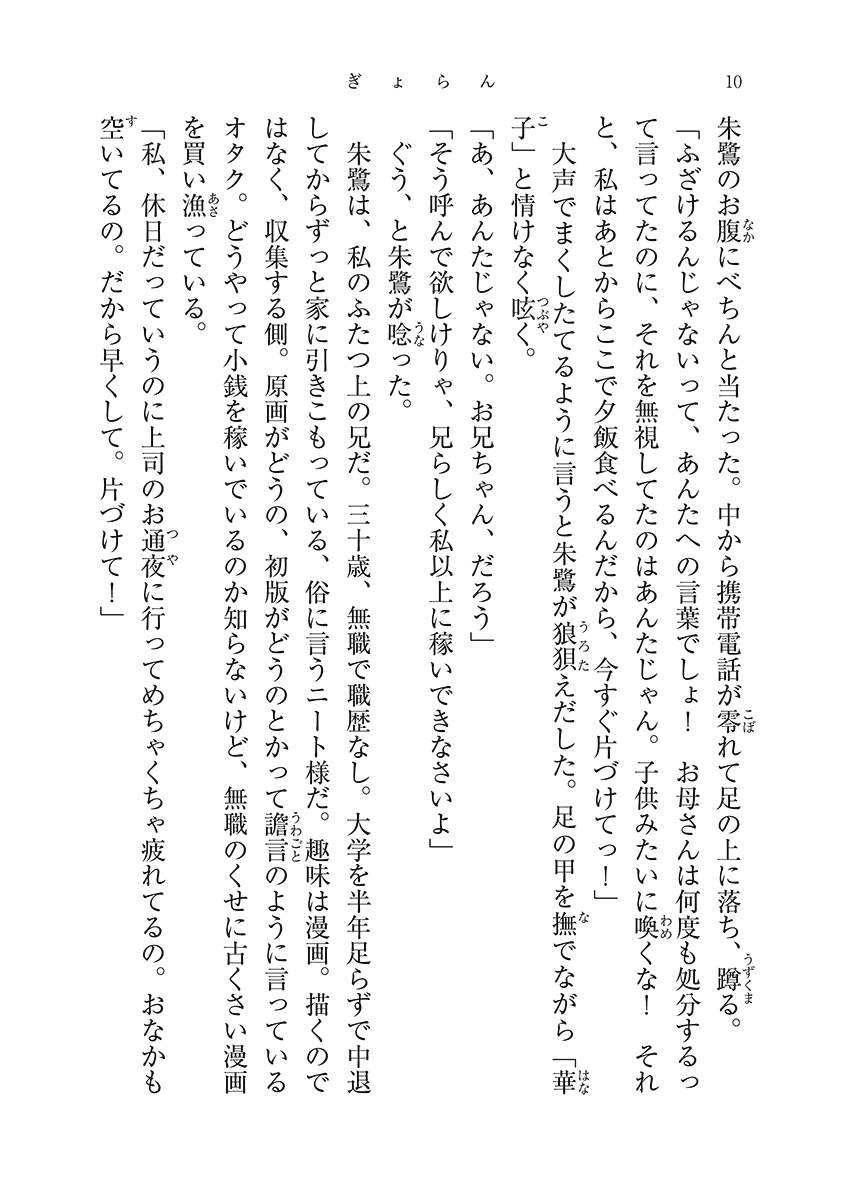 10
ぎょらん
朱鷺のお腹にべちんと当たった。中から携帯電話が零れて足の上に落ち、蹲る。
「ふざけるんじゃないって、あんたへの言葉でしょ！　お母さんは何度も処分するっ
て言ってたのに、それを無視してたのはあんたじゃん。子供みたいに喚くな！　それ
と、私はあとからここで夕飯食べるんだから、今すぐ片づけてっ！」
　大声でまくしたてるように言うと朱鷺が狼狽えだした。足の甲を撫でながら「華
子」と情けなく呟く。
「あ、あんたじゃない。お兄ちゃん、だろう」
「そう呼んで欲しけりゃ、兄らしく私以上に稼いできなさいよ」
　ぐう、と朱鷺が唸った。
　朱鷺は、私のふたつ上の兄だ。三十歳、無職で職歴なし。大学を半年足らずで中退
してからずっと家に引きこもっている、俗に言うニート様だ。趣味は漫画。描くので
はなく、収集する側。原画がどうの、初版がどうのとかって譫言のように言っている
オタク。どうやって小銭を稼いでいるのか知らないけど、無職のくせに古くさい漫画
を買い漁っている。
「私、休日だっていうのに上司のお通夜に行ってめちゃくちゃ疲れてるの。おなかも
空いてるの。だから早くして。片づけて！」